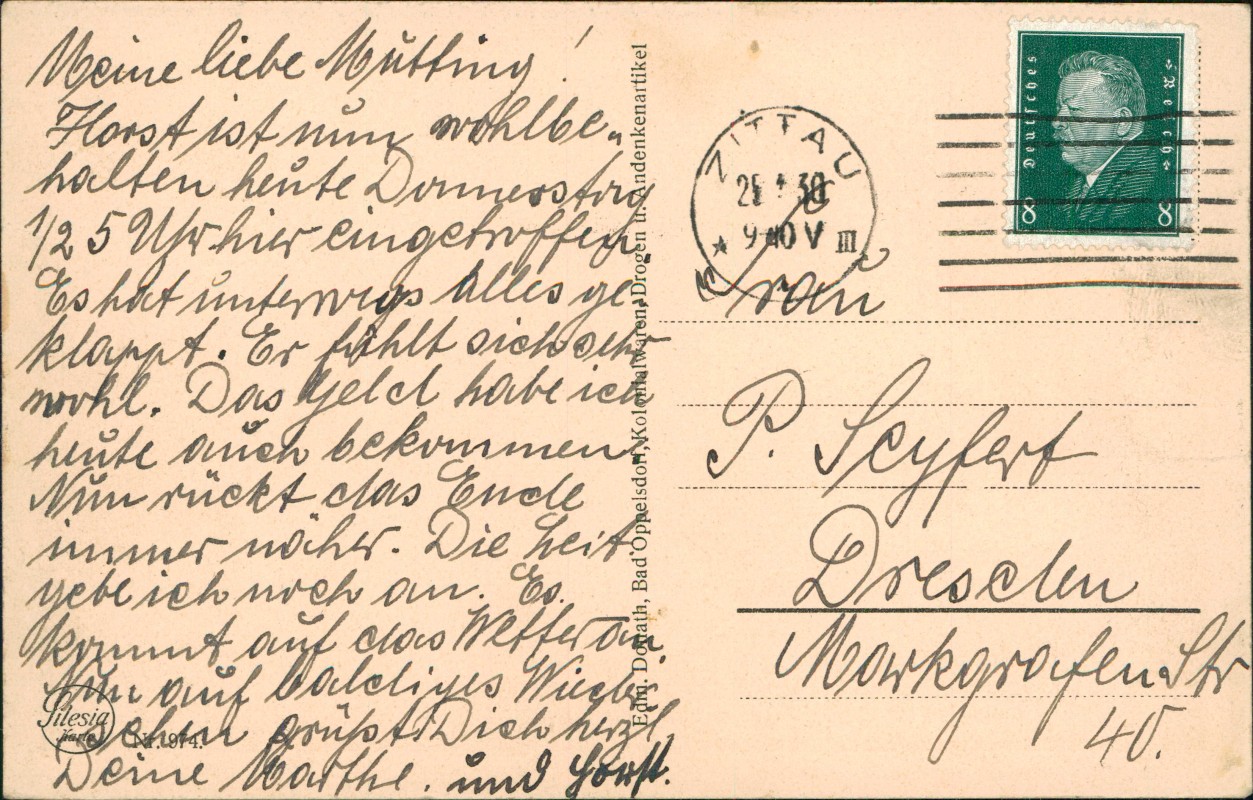 Meine liebe Mutting!
Horst ist nun wohlbe„
halten heute Donnerstag
1/2 5 Uhr hier eingetroffen.
Es hat unterwegs Alles ge-
klappt. Er fühlt sich sehr
wohl. Das Geld habe ich
heute auch bekommen.
Nun rückt das Ende
immer näher. Die Zeit
gebe ich noch an. Es
kommt auf das Wetter an
Nun auf baldiges Wieder
sehen grüßt Dich herzl.
Deine Marthe. und Horst.
Silesia
Karte
Nr. 974.
Edm. Donath, Bad Oppelsdorf, Kolonialwaren, Drogen u. Andenkenartikel
ZITTAU
25 30
9-10 V
III
Deutsches
Reich
8 8
Frau
P. Seyfert
Dresden
Markgrafen Str
40.